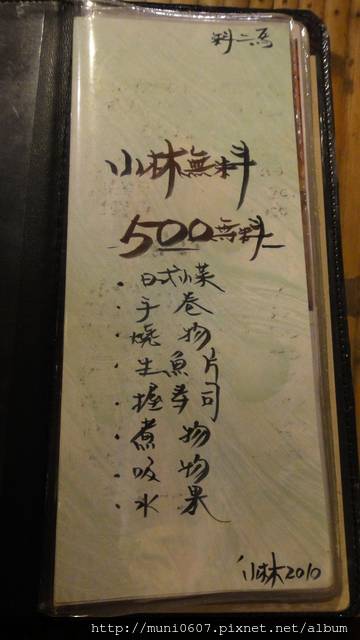 小林無料
500無料
· 日式小菜
· 手卷
· 燒物
· 生魚片
· 握壽司
· 煮物
· 吸物
· 水果
小林2010
http://muni0607.pixnet.net/album